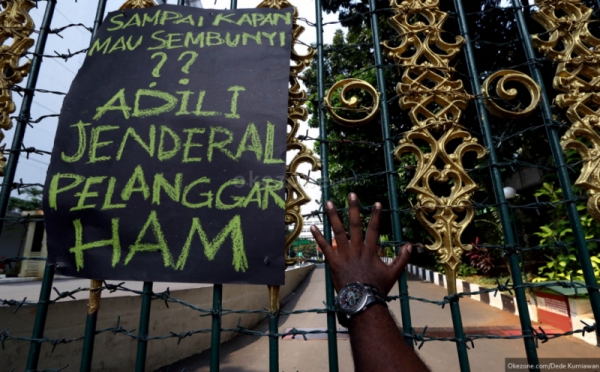 SAMPAI KAPAN
MAU SEMBUNYI
??
ADILI
JENDERAL
PELANGGAR
HAM
Okezone.com/Dede Kurniawan